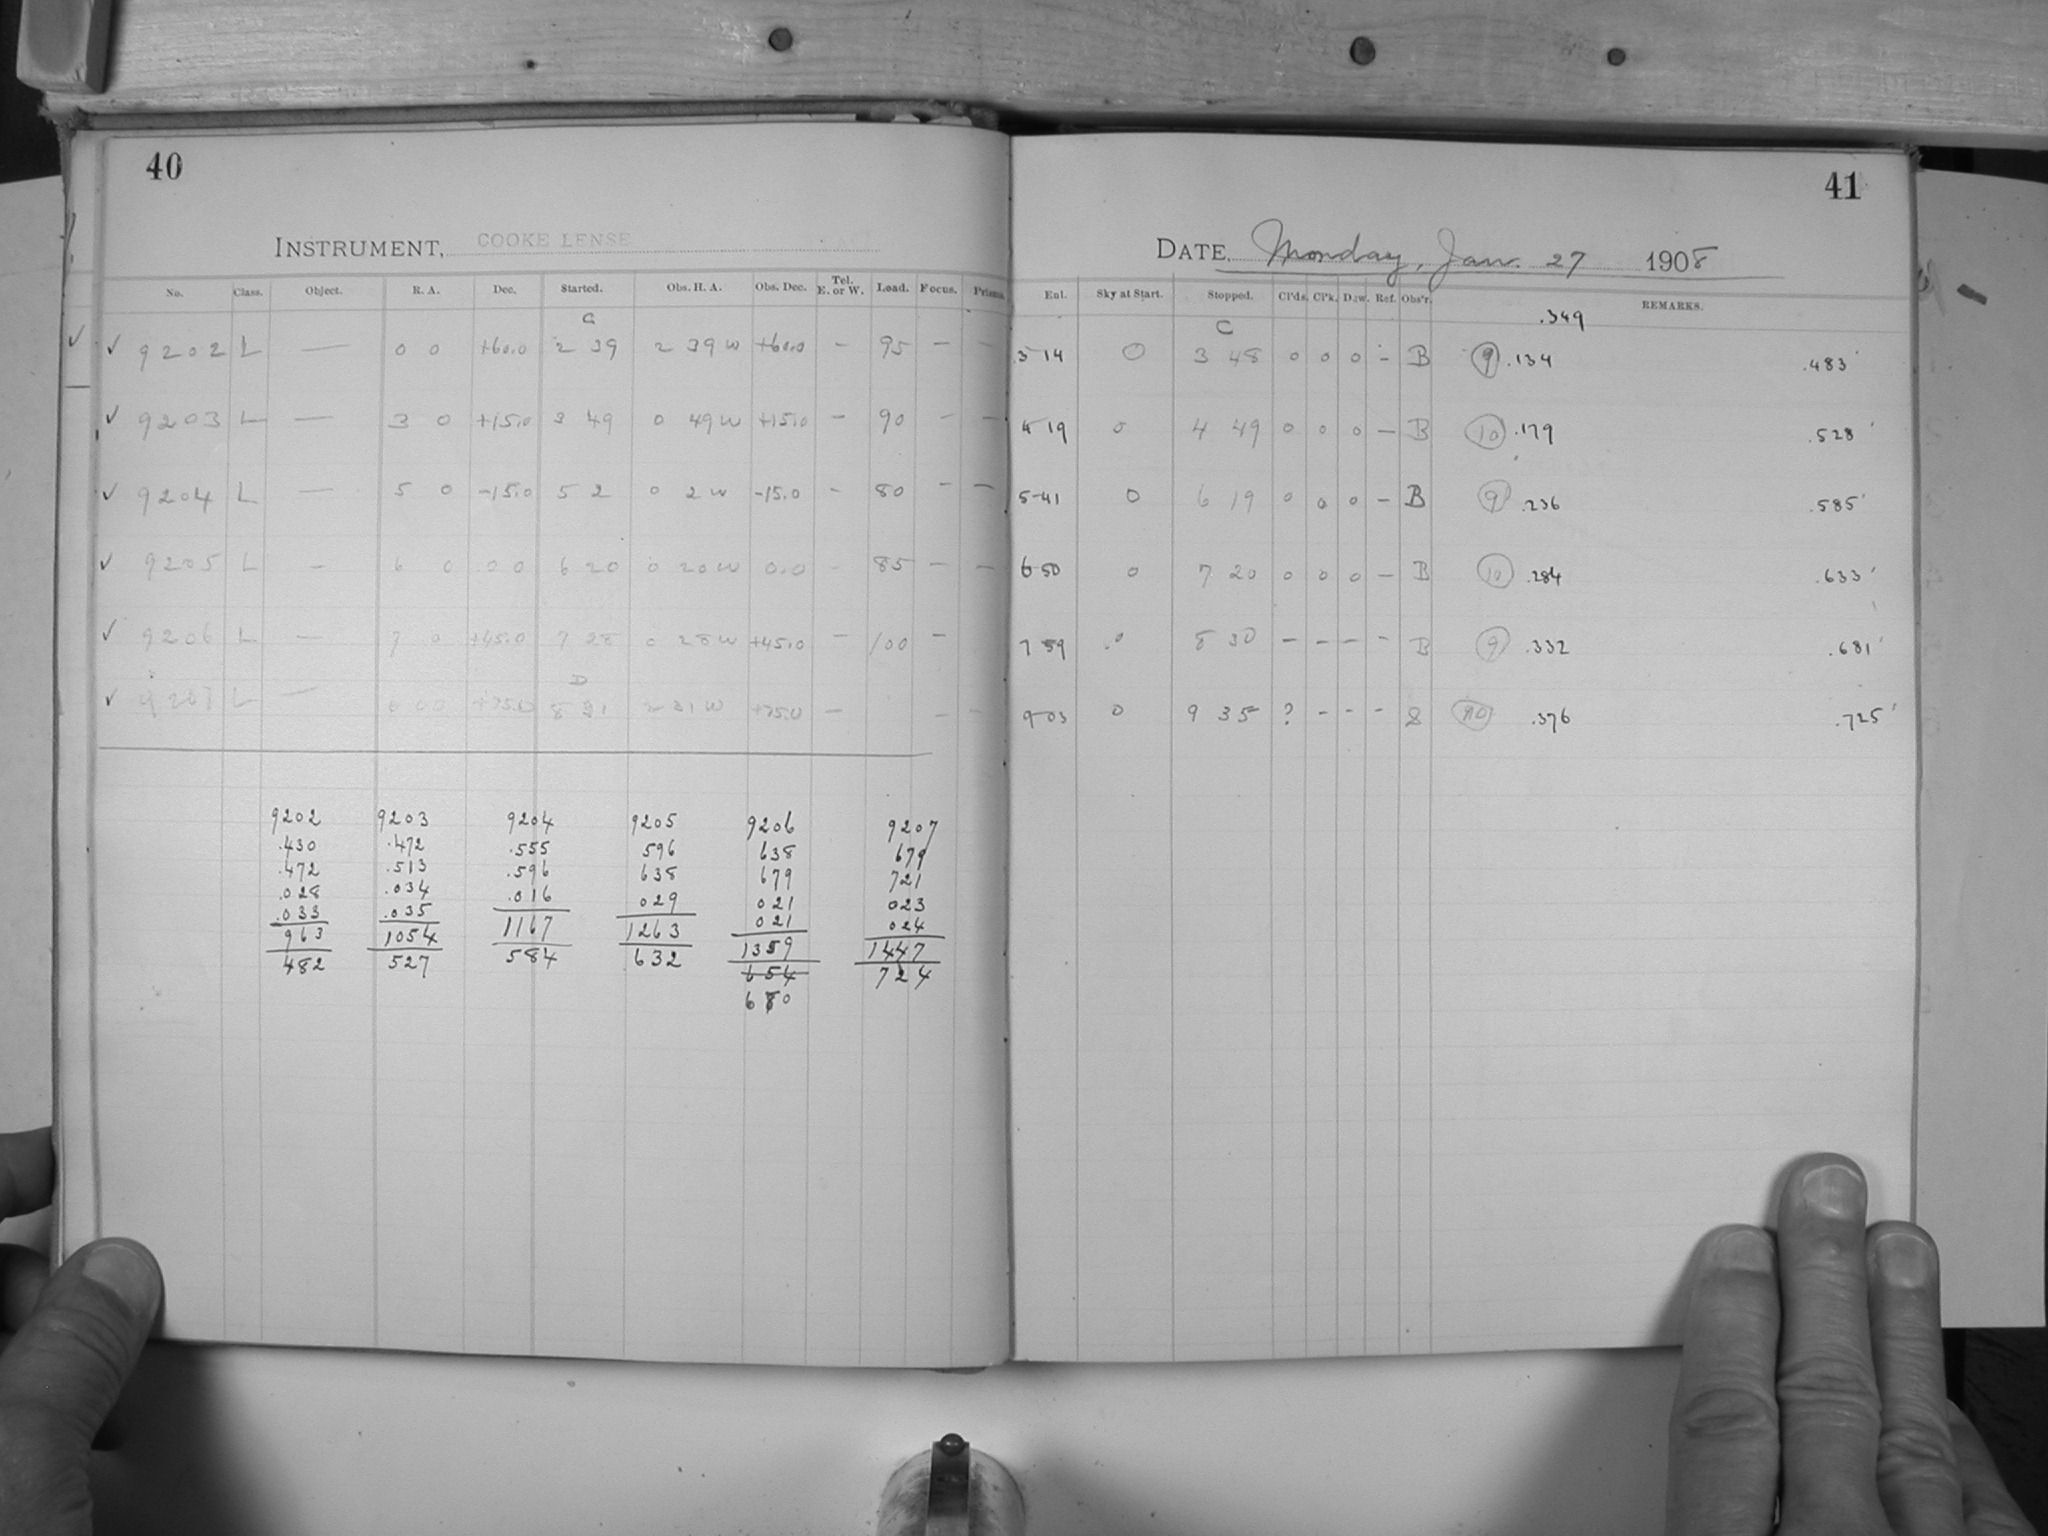 40
INSTRUMENT, COOKE LENSE
No. Class. Object. R. A. Dec. Started. Obs. H. A. Obs. Dec. Tel. E. or W. Load. Focus. Prisms.
C
✓ ✓ 9202 L — 0 0 +60.0 2 39 2 39 W +60.0 – 95 – –
✓ 9203 L — 3 0 +15.0 3 49 0 49 W +15.0 – 90 – –
✓ 9204 L — 5 0 -15.0 5 2 0 2 W -15.0 – 80 – –
✓ 9205 L – 6 0 0.0 6 20 0 20 W 0.0 – 85 – –
✓ 9206 L — 7 0 +45.0 7 28 0 28 W +45.0 – 100 –
D
✓ 9207 L — 6 00 +75.0 8 31 2 31 W +75.0 – – –
9202 9203 9204 9205 9206 9207
.430 .472 .555 596 638 679
.472 .513 .596 638 679 721
.028 .034 .016 029 021 023
.033 .035 1167 1263 021 024
963 1054 584 632 1359 1447
482 527 654 724
680
41
DATE, Monday, Jan. 27 1908
Enl. Sky at Start. Stopped. Cl'ds. Cl'k. Dew. Ref. Obs'r. REMARKS.
C .349
3 14 0 3 48 0 0 0 – B 9 .134 .483
4 19 0 4 49 0 0 0 – B 10 .179 .528
5 41 0 6 19 0 0 0 – B 9 .236 .585
6 50 0 7 20 0 0 0 – B 10 .284 .633
7 59 0 8 30 – – – – B 9 .332 .681
9 03 0 9 35 ? – – – S 10 .376 .725